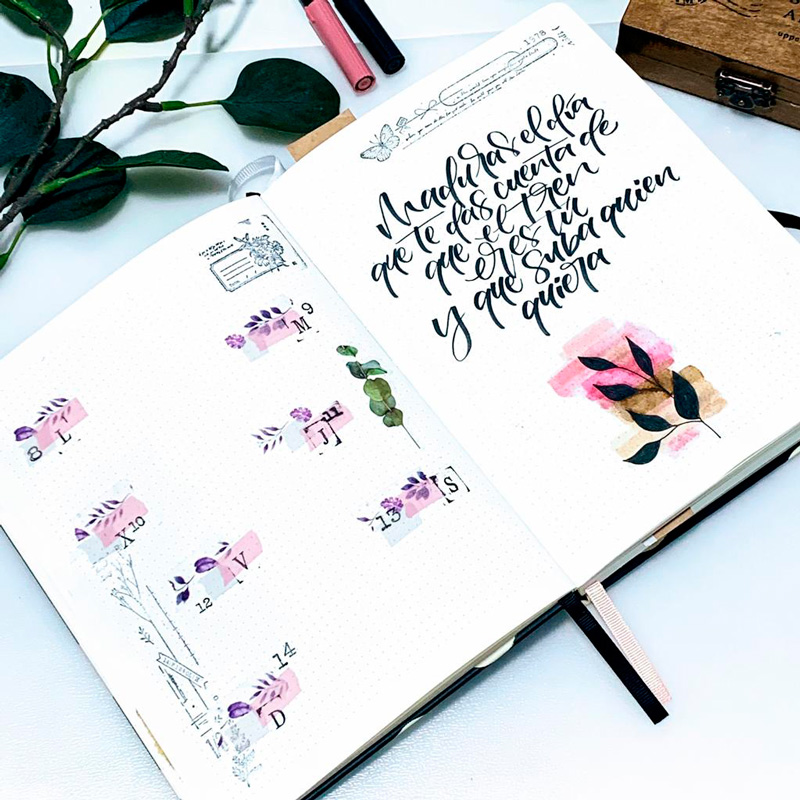 M 9
8 L
J 11
X 10
13 S
12 V
14
D
1978
Maduras el día
que te das cuenta de
que el tren
eres tú
y que suba quien
quiera